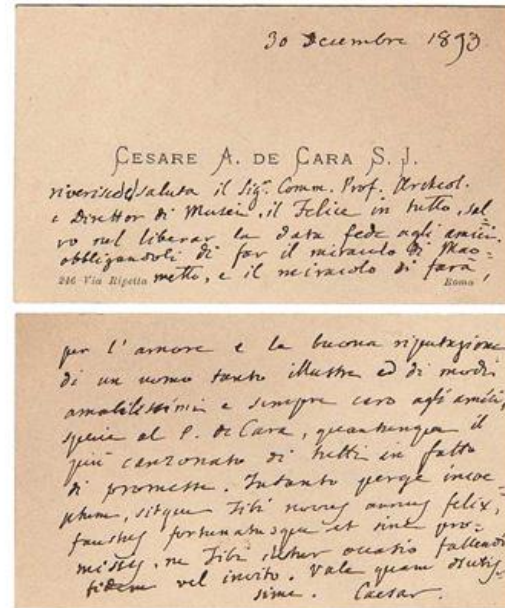 30 Decembre 1893
CESARE A. DE CARA S. J.
riverisce e saluta il Sigr. Comm. Prof. Archeol.
e Direttor di Musei, il Felice in tutto, sal
vo nel liberar la data fede agli amici.
obbligandoli di far il miracolo di Mao=
246 Via Ripetta metto, e il miracolo si farà, Roma
per l'amore e la buona riputazione
di un uomo tanto illustre ed di modi
amabilissimi e sempre caro agli amici,
specie al P. de Cara, quantunque il
più canzonato di tutti in fatto
di promesse. Intanto perge incoe
ptum, sitque Tibi novus annus felix,
faustus fortunatusque et sine pro=
missis, ne Tibi detur occasio fallendi
fidem vel invito. Vale quam diutis
sime. Caesar.